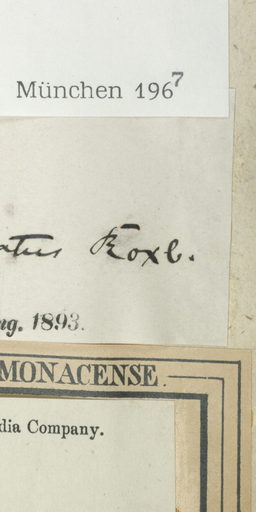 München 1967
atus Roxb.
ug. 1893.
MONACENSE
dia Company.